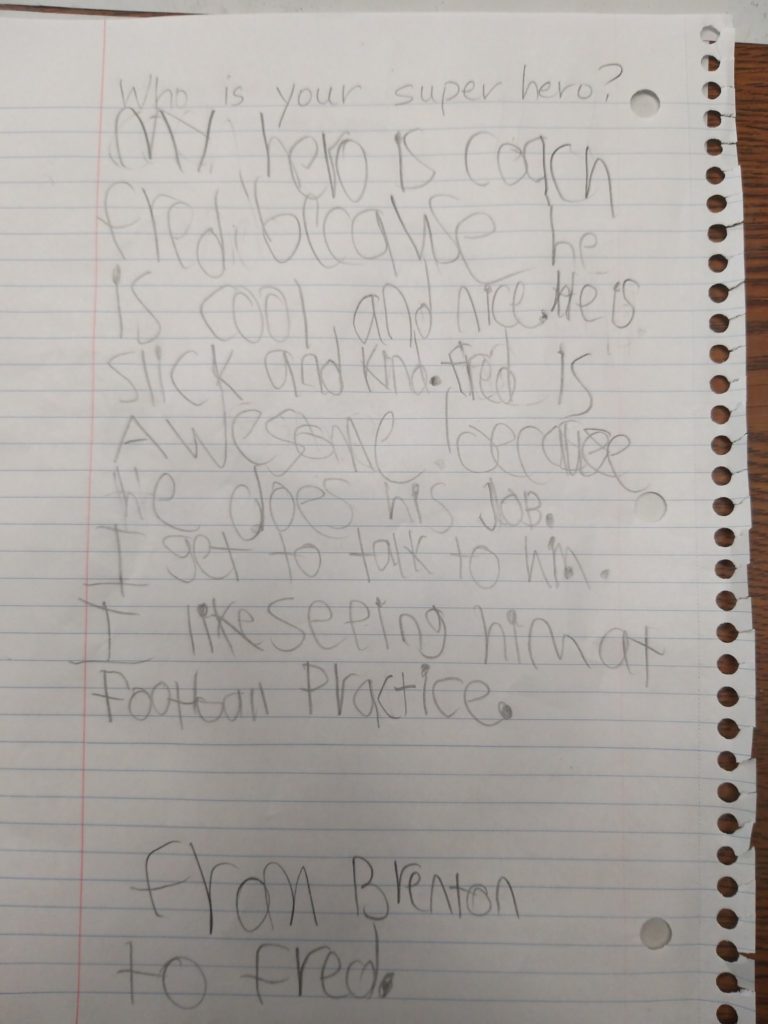 Who is your super hero?
My hero is coach
fred because he
is cool and nice. He is
slick and kind. fred is
AWesome because
he does his JOB.
I get to talk to him.
I like seeing him at
Football Practice.
fron Brenton
to fred.